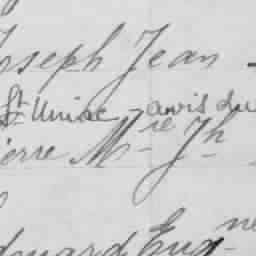 Joseph Jean -
St Uniac, avis du
ierre M.ie Jh
douard Eug.ne